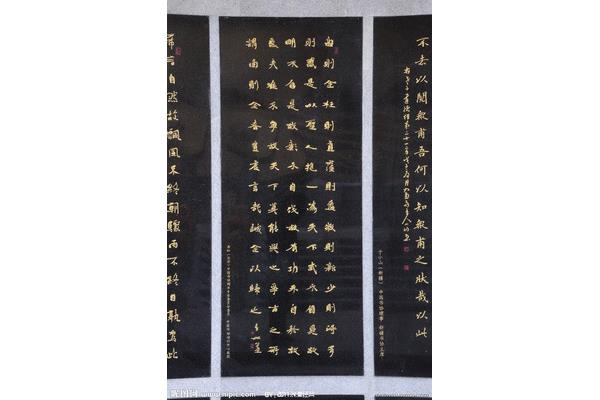 不去以閱衆甫吾何以知衆甫之狀哉以此
于小山（新疆）中国书协理事 新疆书协主席
曲則全枉則直窪則盈敝則新少則得多
則惑是以聖人抱一為天下式不自見故
明不自是故彰不自伐故有功不自矜故
長夫唯不爭故天下莫能與之爭古之所
謂曲則全者豈虛言哉誠全以歸之
希言自然故飄風不終朝驟雨不終日孰為此